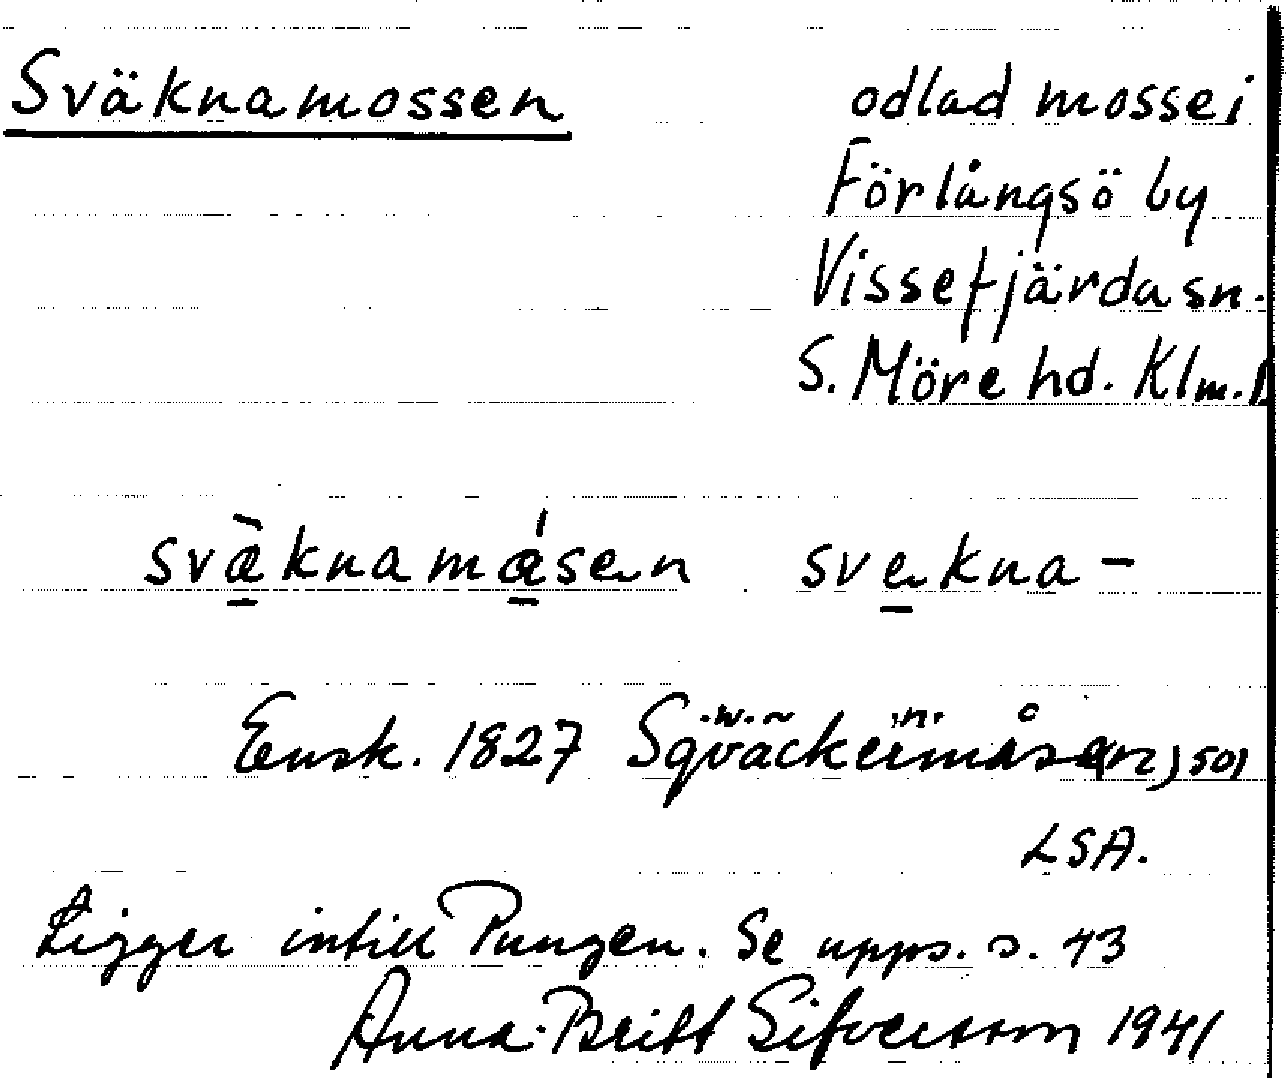 Sväknamossen odlad mosse i
Förlångsö by
Vissefjärda sn.
S. Möre hd. Klm. L
sväknamåsen svekna-
Ensk. 1827 Sqväckermåsen, 501
LSA.
Ligger intill Pungen. Se upps. s. 43
Anna-Britt Sifversson 1941